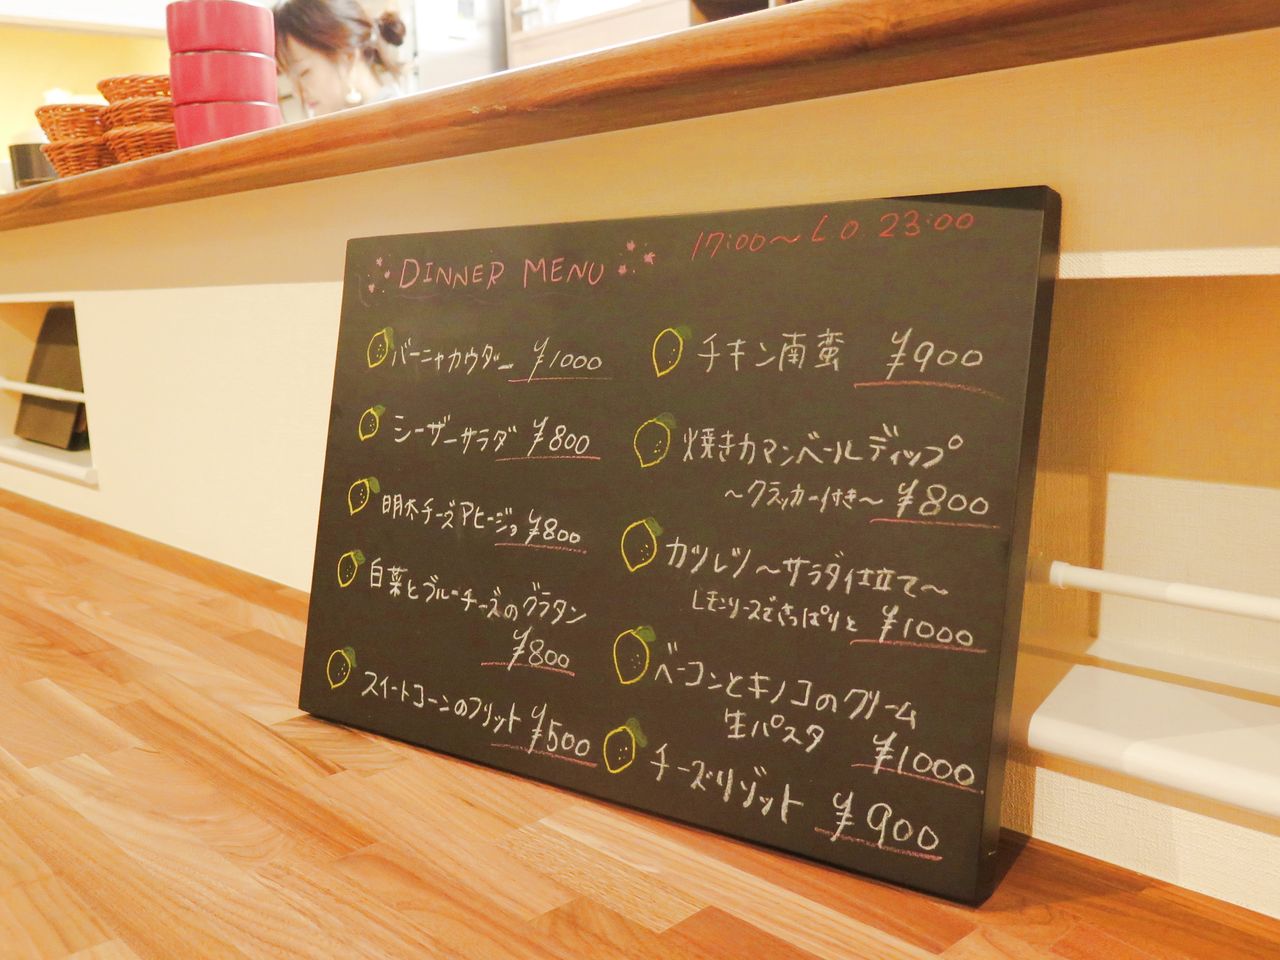 DINNER MENU
17:00〜LO 23:00
バーニャカウダー ¥1000
シーザーサラダ ¥800
明太チーズアヒージョ ¥800
白菜とブルーチーズのグラタン
¥800
スイートコーンのフリット ¥500
チキン南蛮 ¥900
焼きカマンベールディップ
〜クラッカー付き〜 ¥800
カツレツ〜サラダ仕立て〜
レモンソースでさっぱりと ¥1000
ベーコンとキノコのクリーム
生パスタ ¥1000
チーズリゾット ¥900